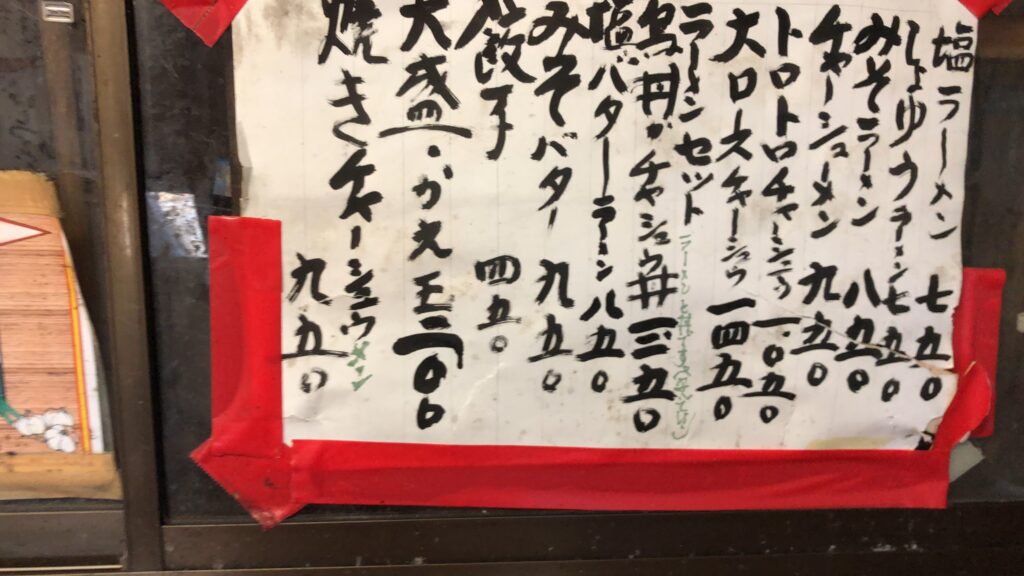 塩ラーメン 七五〇
しょゆうラーメン 七五〇
みそラーメン 八五〇
チャーシューメン 九五〇
トロトロチャーシュウ 一〇五〇
大ロースチャーシュウ 一四五〇
ラーメンセット
丼がチャシュウ丼 五〇
塩バターラーメン 八五〇
みそバター 九五〇
餃子 四五〇
大盛・かえ玉 二〇〇
焼きチャーシュウメン 九五〇